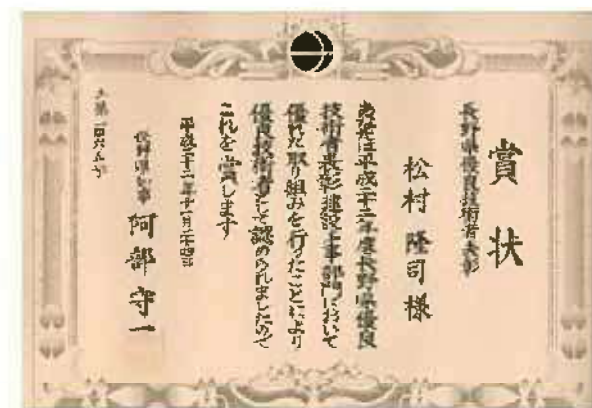 賞状
長野県優良技術者表彰
松村 隆司 様
貴殿は平成二十二年度長野県優良
技術者表彰建設工事部門において
優れた取り組みを行ったことにより
優良技術者として認められましたので
これを賞します
平成二十二年十一月二十四日
長野県知事 阿部守一